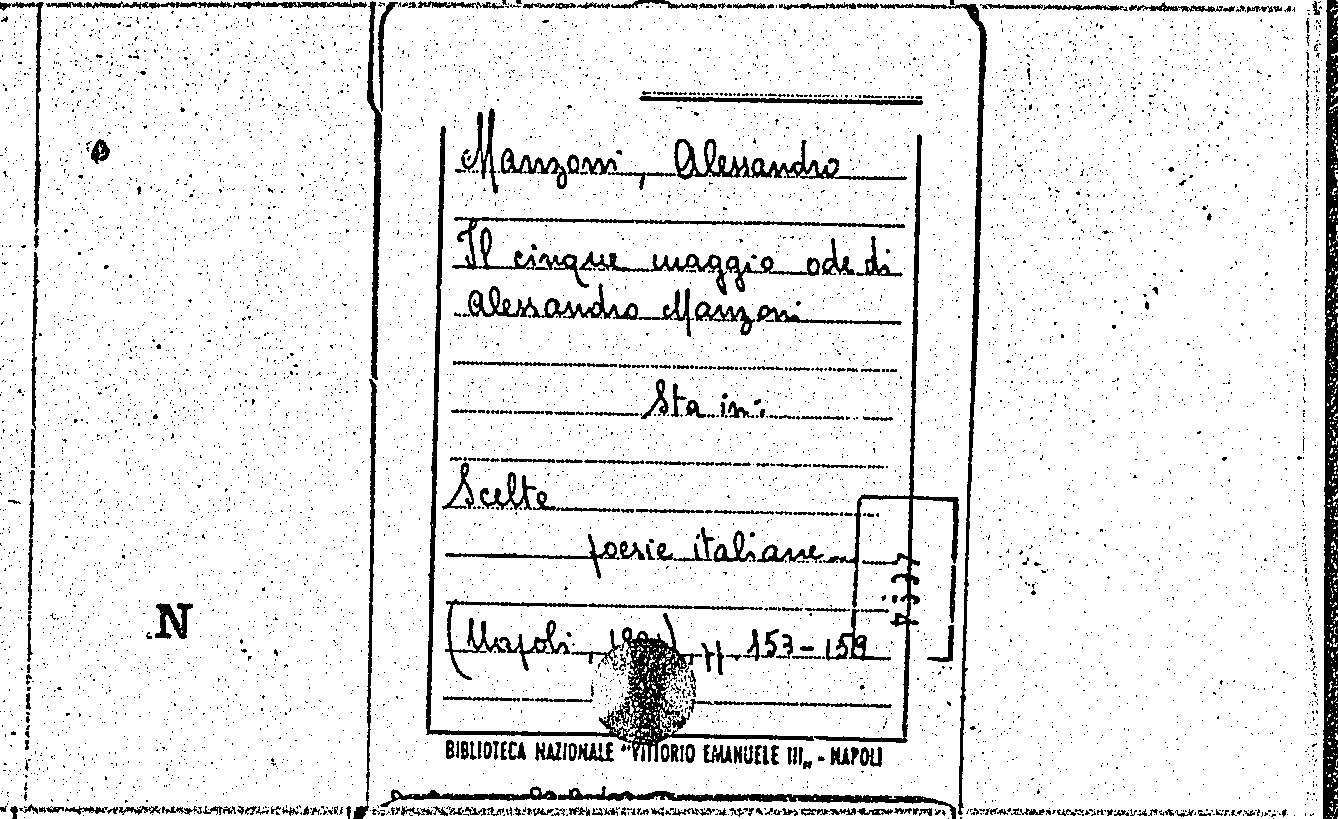 Manzoni, Alessandro
Il cinque maggio ode di
Alessandro Manzoni
Sta in:
Scelte
poesie italiane
N
(Napoli, pp. 153-159
BIBLIOTECA NAZIONALE "VITTORIO EMANUELE III„ - NAPOLI